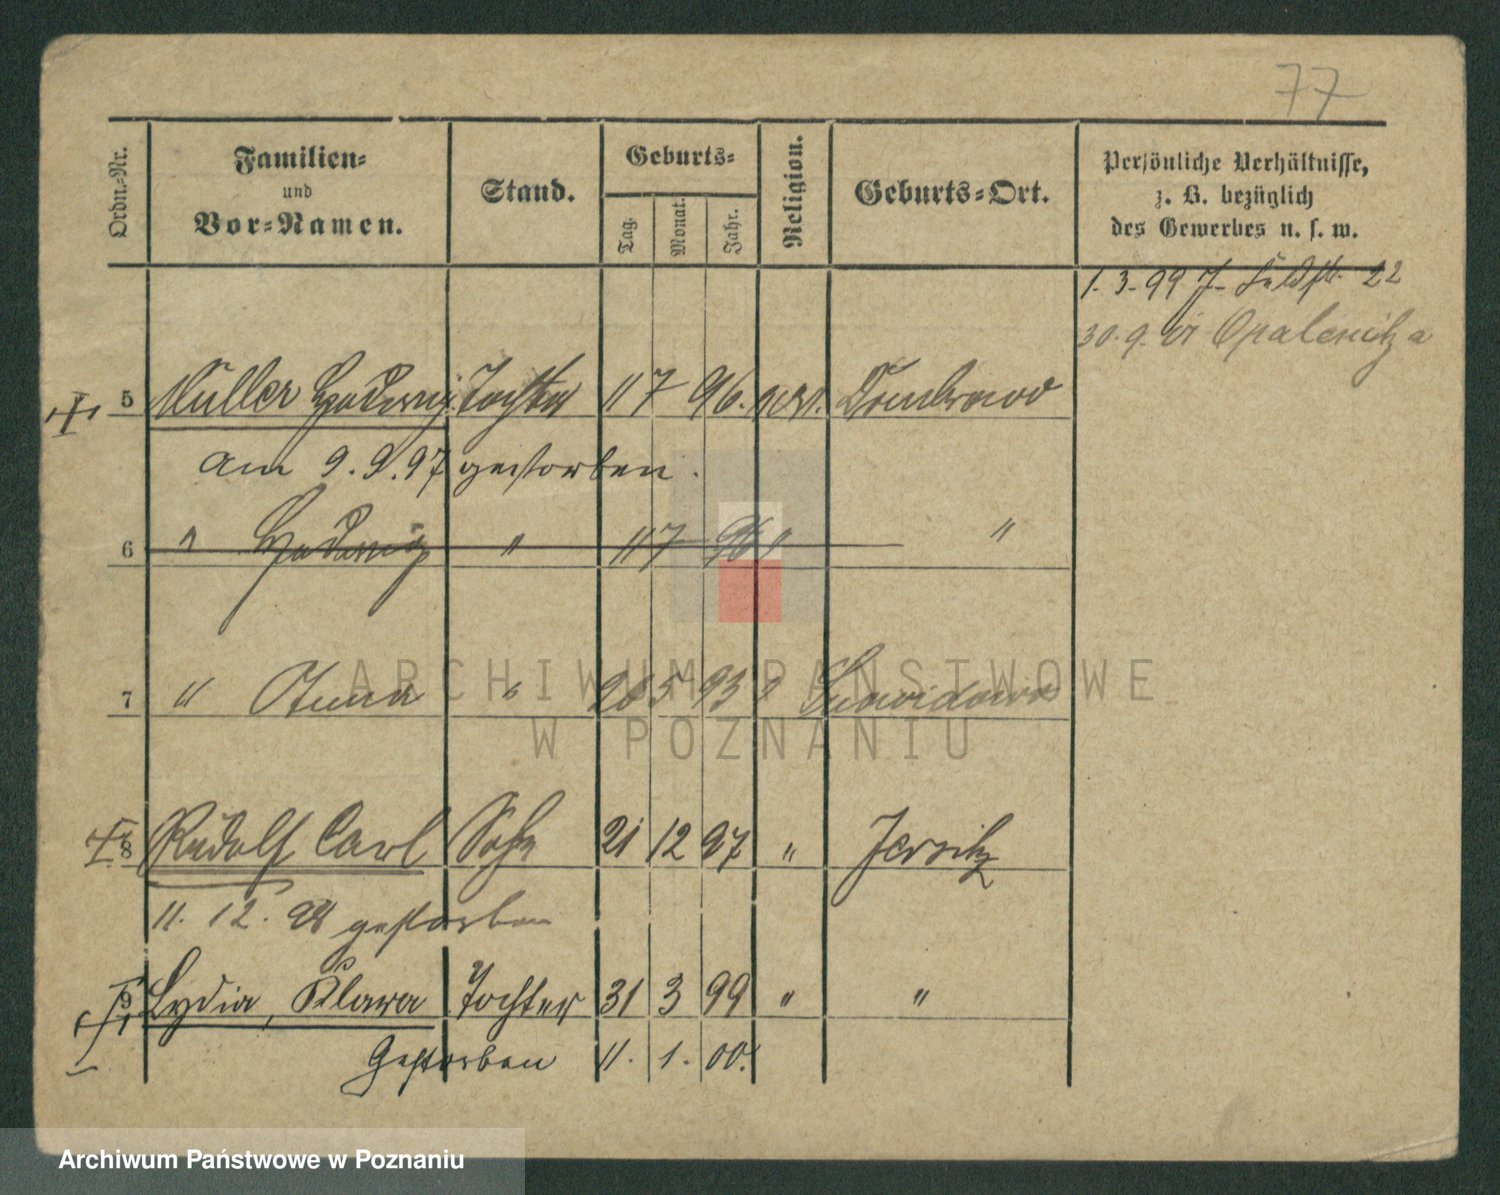 77
Ordn.-Nr.
Familien-
und
Vor-Namen.
Stand.
Geburts-
Tag.
Monat.
Jahr.
Religion.
Geburts-Ort.
Persönliche Verhältnisse,
z. B. bezüglich
des Gewerbes u. s. w.
1. 3. 99 J. Feldstr. 22
30. 9. 01 Opalenitza
5 Müller Hedwig Tochter 11 7 96.
am 9. 9. 97 gestorben.
6 " Hedwig " 11 7 96 " "
7 " Anna " 26 5 93 "
ARCHIWUM PAŃSTWOWE
W POZNANIU
8 Rudolf Carl Sohn 21 12 97 " Jersitz
11. 12. 98 gestorben
9 Lydia, Klara Tochter 31 3 99 " "
Gestorben 11. 1. 00.
Archiwum Państwowe w Poznaniu